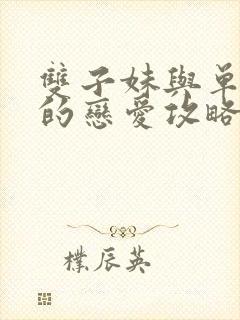 雙子妹與單
的戀愛攻略
樸辰英